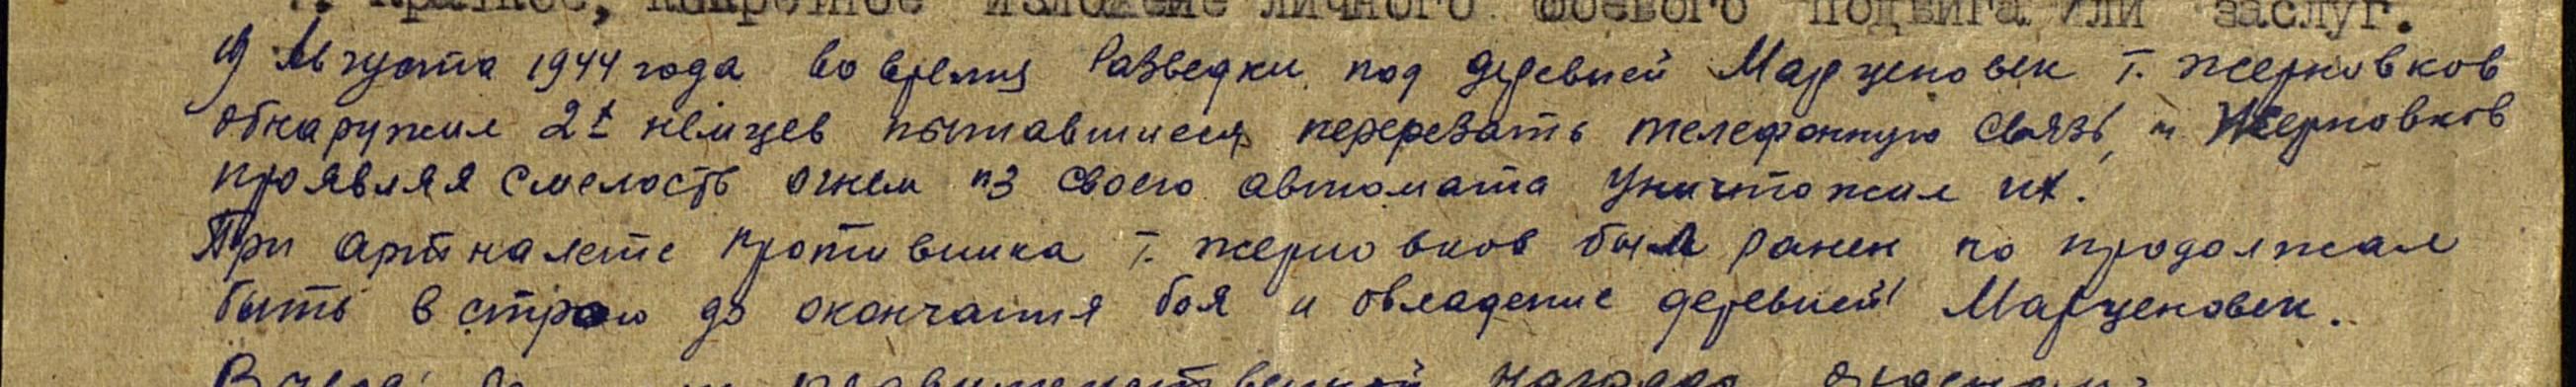 Краткое, конкретное изложение личного боевого подвига или заслуг.
19 Августа 1944 года во время Разведки под деревней Марценовек т. Жерновков
обнаружил 2х немцев пытавшиеся перерезать телефонную связь, и Жерновков
проявляя смелость огнем из своего автомата уничтожил их.
При артналете противника т. Жерновков был ранен но продолжал
быть в строю до окончания боя и овладение деревней Марценовек.